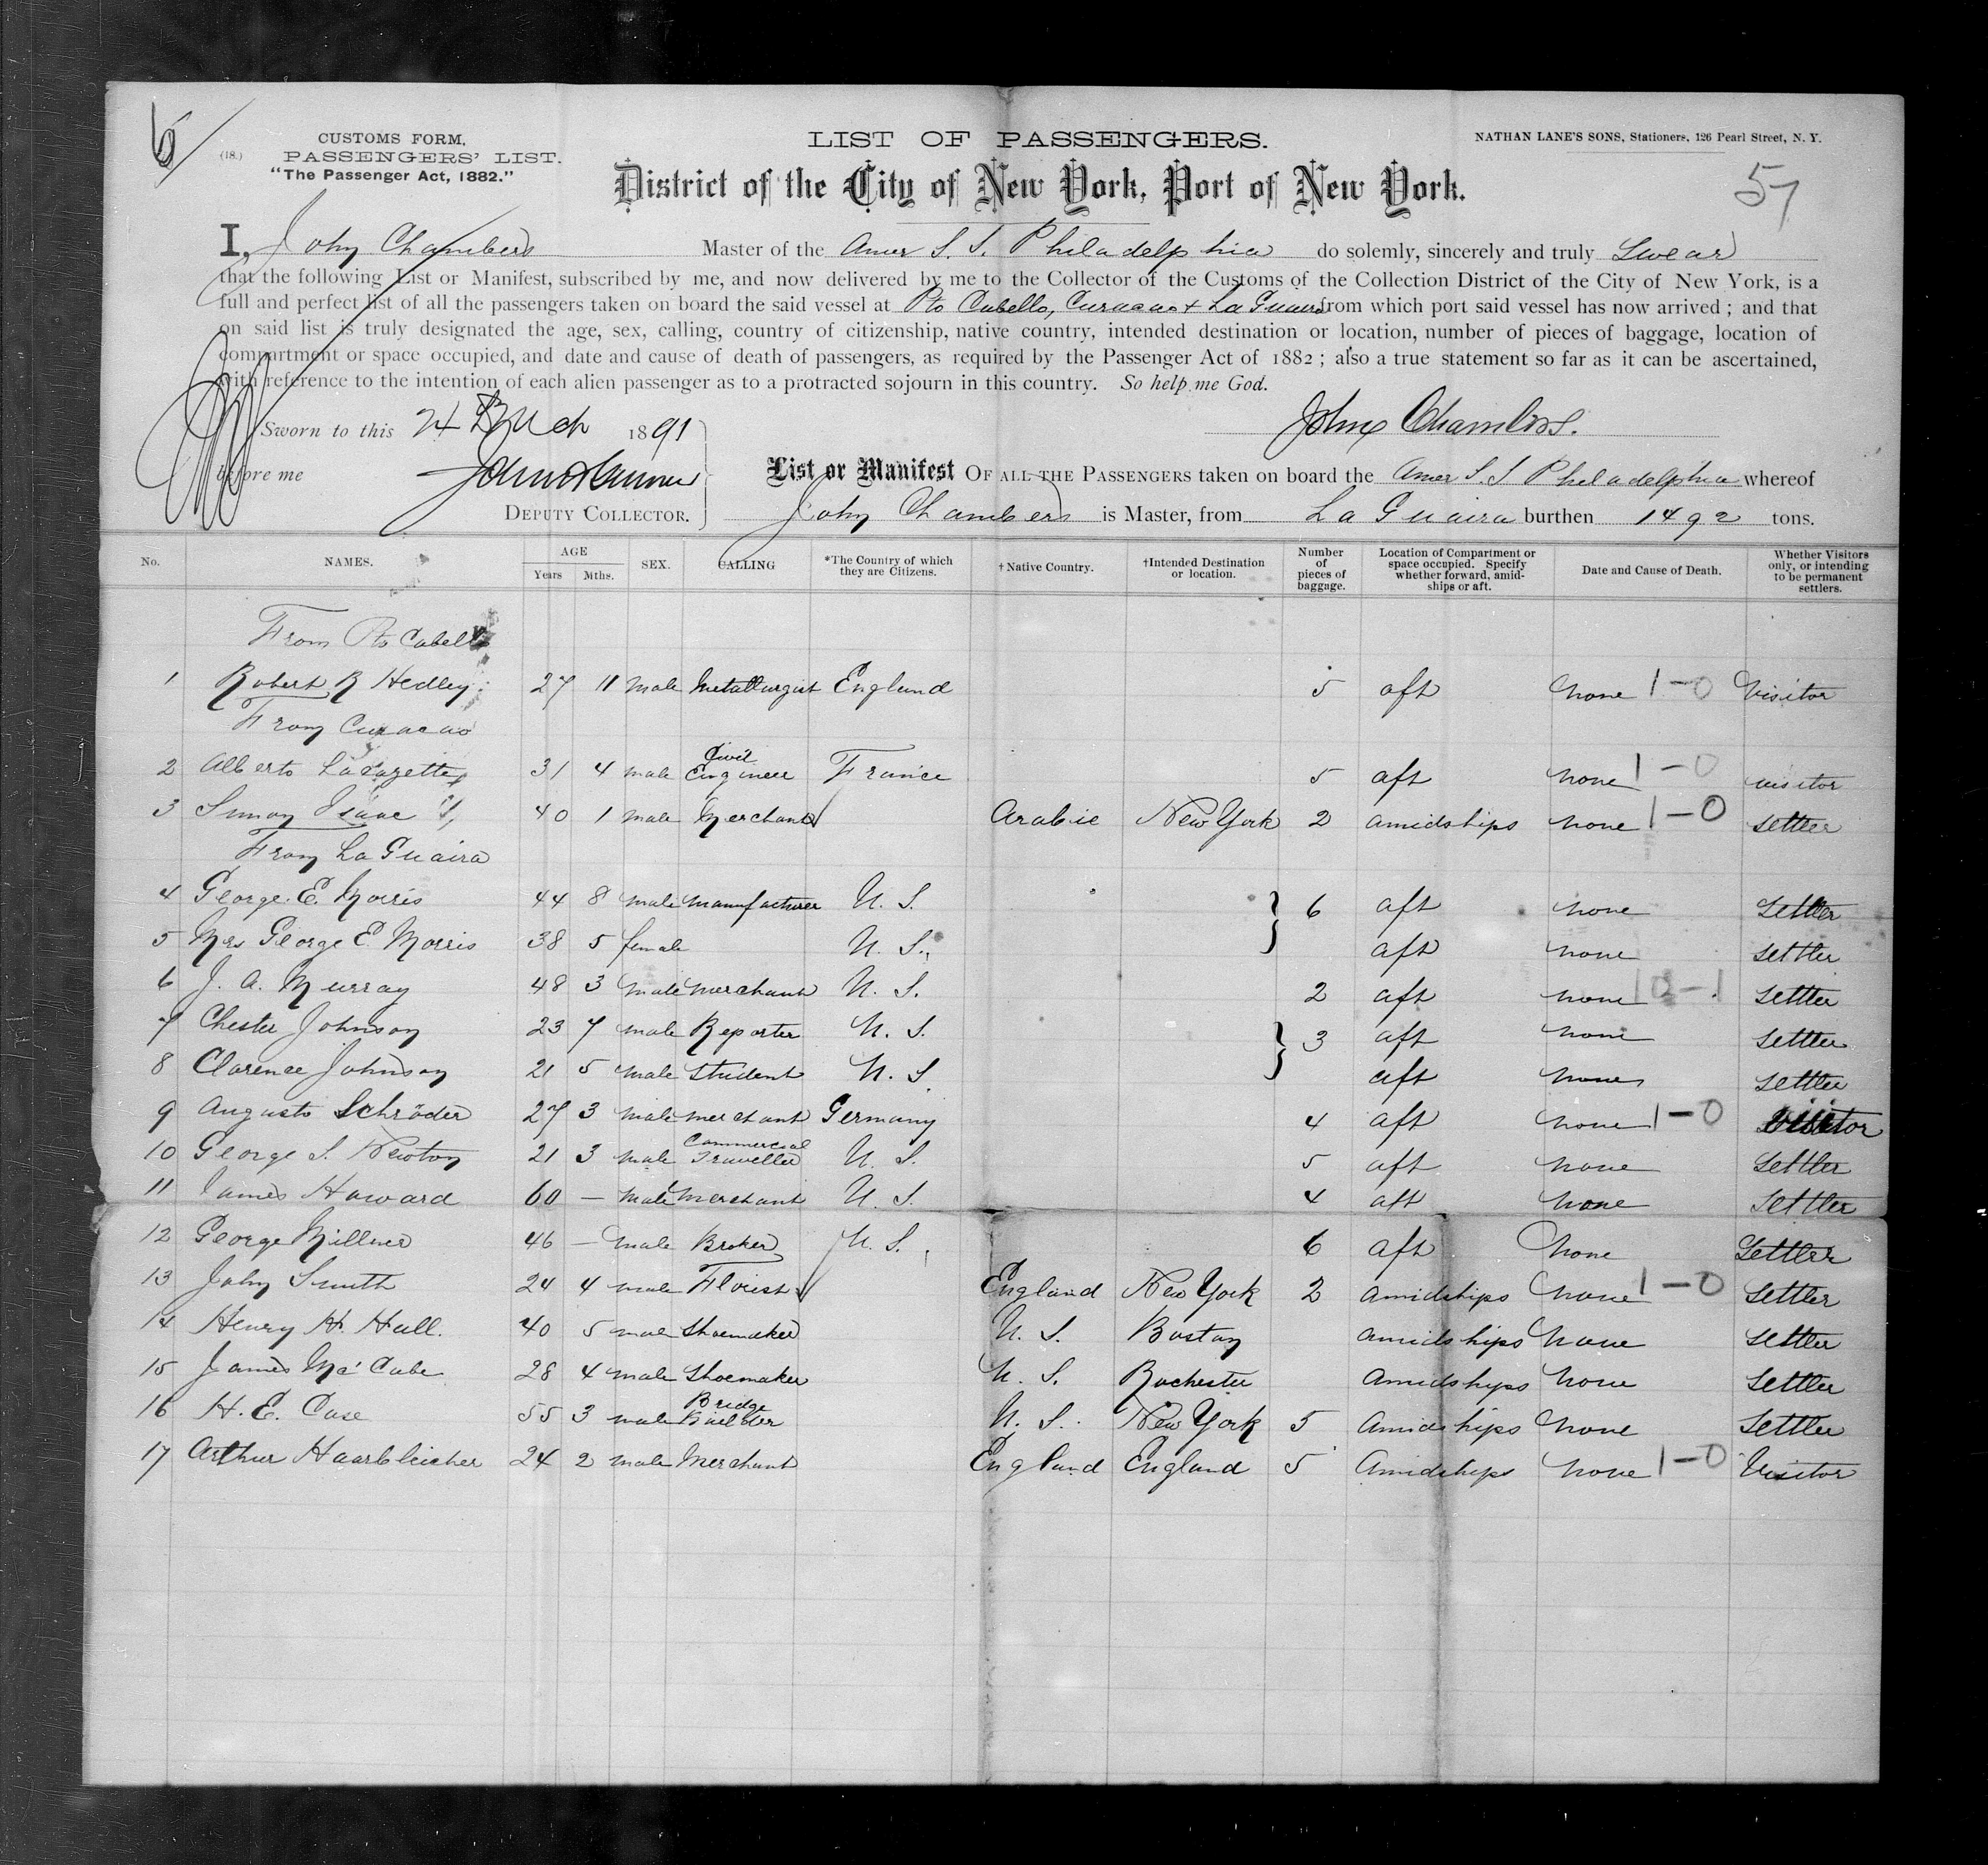 6
CUSTOMS FORM,
(18.) PASSENGERS' LIST.
"The Passenger Act, 1882."
LIST OF PASSENGERS.
NATHAN LANE'S SONS, Stationers, 126 Pearl Street, N. Y.
District of the City of New York, Port of New York.
57
I, John Chambers Master of the Amer S. S. Philadelphia do solemnly, sincerely and truly Swear
that the following List or Manifest, subscribed by me, and now delivered by me to the Collector of the Customs of the Collection District of the City of New York, is a
full and perfect list of all the passengers taken on board the said vessel at Pto Cabello, Curacao + La Guaira from which port said vessel has now arrived; and that
on said list is truly designated the age, sex, calling, country of citizenship, native country, intended destination or location, number of pieces of baggage, location of
compartment or space occupied, and date and cause of death of passengers, as required by the Passenger Act of 1882; also a true statement so far as it can be ascertained,
with reference to the intention of each alien passenger as to a protracted sojourn in this country. So help me God.
Sworn to this 24 March 1891
John Chambers.
before me
DEPUTY COLLECTOR.
List or Manifest OF ALL THE PASSENGERS taken on board the Amer S. S Philadelphia whereof
John Chambers is Master, from La Guaira burthen 1492 tons.
No. NAMES. AGE Years Mths. SEX. CALLING *The Country of which they are Citizens. †Native Country. †Intended Destination or location. Number of pieces of baggage. Location of Compartment or space occupied. Specify whether forward, amidships or aft. Date and Cause of Death. Whether Visitors only, or intending to be permanent settlers.
From Pto Cabello
1 Robert R Hedley 27 11 male Metallurgist England 5 aft none 1-0 Visitor
From Curacao
2 Alberto 31 4 male Civil Engineer France 5 aft none 1-0 visitor
3 Simon Isaac 40 1 male Merchant Arabie New York 2 amidships none 1-0 settler
From La Guaira
4 George. E. Morris 44 8 male manufacturer U. S. } 6 aft none Settler
5 Mrs George E Morris 38 5 female U. S. aft none settler
6 J. A. Murray 48 3 male merchant U. S. 2 aft none settler
7 Chester Johnson 23 7 male Reporter U. S. } 3 aft none settler
8 Clarence Johnson 21 5 male Student U. S. aft none settler
9 Augusto Schröder 27 3 male merchant Germany 4 aft none 1-0 visitor
10 George S. Newton 21 3 male Commercial Traveller U. S. 5 aft none settler
11 James Howard 60 — male merchant U. S. 4 aft none settler
12 George Millner 46 — male Broker U. S. 6 aft none Settler
13 John Smith 24 4 male Florist England New York 2 amidships none 1-0 settler
14 Henry H. Hall. 40 5 male Shoemaker U. S. Boston amidships none settler
15 James Mc Cabe 28 4 male Shoemaker U. S. Rochester Amidships none settler
16 H. E. Case 55 3 male Bridge Builder U. S. New York 5 Amidships none settler
17 Arthur Haarbleicher 24 2 male Merchant England England 5 Amidships none 1-0 Visitor